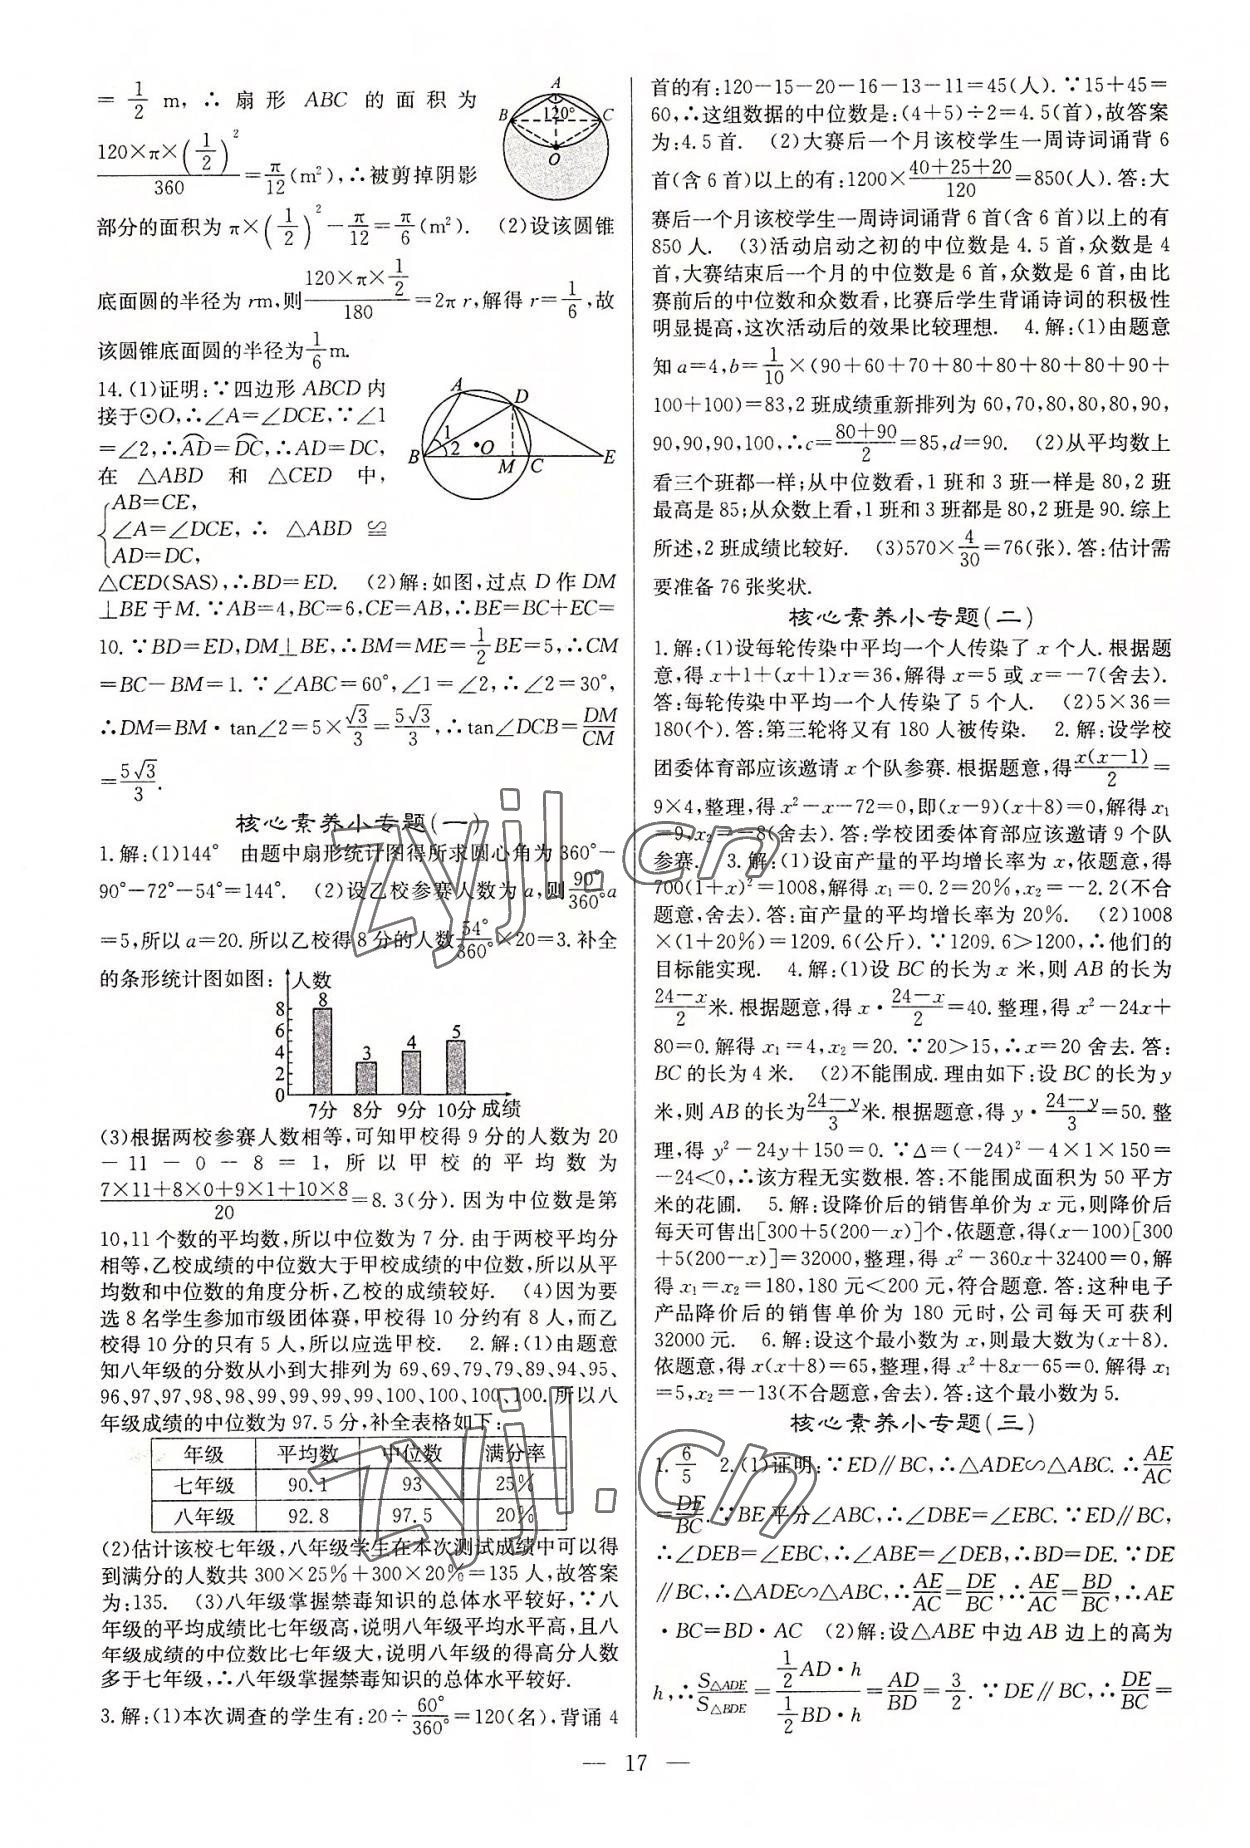 =1/2 m,∴扇形 ABC 的面积为
120×π×(1/2)²/360=π/12(m²),∴被剪掉阴影
部分的面积为 π×(1/2)²-π/12=π/6(m²). (2)设该圆锥
底面圆的半径为 rm,则 120×π×1/2/180=2πr,解得 r=1/6,故
该圆锥底面圆的半径为1/6m.
A
B
120°
C
O
14.(1)证明:∵四边形 ABCD 内
接于⊙O,∴∠A=∠DCE,∵∠1
=∠2,∴AD⌒=DC⌒,∴AD=DC,
在 △ABD 和 △CED 中,
{AB=CE,
∠A=∠DCE, ∴ △ABD ≌
AD=DC,
A
D
1
2
O
B
M
C
E
△CED(SAS),∴BD=ED. (2)解:如图,过点 D 作 DM
⊥BE 于 M.∵AB=4,BC=6,CE=AB,∴BE=BC+EC=
10.∵BD=ED,DM⊥BE,∴BM=ME=1/2BE=5,∴CM
=BC-BM=1.∵∠ABC=60°,∠1=∠2,∴∠2=30°,
∴DM=BM·tan∠2=5×√3/3=5√3/3,∴tan∠DCB=DM/CM
=5√3/3.
核心素养小专题(一)
1.解:(1)144° 由题中扇形统计图得所求圆心角为 360°-
90°-72°-54°=144°. (2)设乙校参赛人数为 a,则90°/360°a
=5,所以 a=20.所以乙校得8分的人数54°/360°×20=3.补全
的条形统计图如图:
人数
8
6
4
2
0
8
3
4
5
7分 8分 9分 10分 成绩
(3)根据两校参赛人数相等,可知甲校得 9 分的人数为 20
-11-0-8=1,所以甲校的平均数为
7×11+8×0+9×1+10×8/20=8.3(分).因为中位数是第
10,11 个数的平均数,所以中位数为 7 分.由于两校平均分
相等,乙校成绩的中位数大于甲校成绩的中位数,所以从平
均数和中位数的角度分析,乙校的成绩较好. (4)因为要
选 8 名学生参加市级团体赛,甲校得 10 分约有 8 人,而乙
校得 10 分的只有 5 人,所以应选甲校. 2.解:(1)由题意
知八年级的分数从小到大排列为 69,69,79,79,89,94,95,
96,97,97,98,98,99,99,99,99,100,100,100,100.所以八
年级成绩的中位数为 97.5 分,补全表格如下:
年级 平均数 中位数 满分率
七年级 90.1 93 25%
八年级 92.8 97.5 20%
(2)估计该校七年级,八年级学生在本次测试成绩中可以得
到满分的人数共 300×25%+300×20%=135 人,故答案
为:135. (3)八年级掌握禁毒知识的总体水平较好,∵八
年级的平均成绩比七年级高,说明八年级平均水平高,且八
年级成绩的中位数比七年级大,说明八年级的得高分人数
多于七年级,∴八年级掌握禁毒知识的总体水平较好.
3.解:(1)本次调查的学生有:20÷60°/360°=120(名),背诵 4
首的有:120-15-20-16-13-11=45(人).∵15+45=
60,∴这组数据的中位数是:(4+5)÷2=4.5(首),故答案
为:4.5首. (2)大赛后一个月该校学生一周诗词诵背 6
首(含 6 首)以上的有:1200×40+25+20/120=850(人).答:大
赛后一个月该校学生一周诗词诵背 6 首(含 6 首)以上的有
850 人. (3)活动启动之初的中位数是 4.5 首,众数是 4
首,大赛结束后一个月的中位数是 6 首,众数是 6 首,由比
赛前后的中位数和众数看,比赛后学生背诵诗词的积极性
明显提高,这次活动后的效果比较理想. 4.解:(1)由题意
知 a=4,b=1/10×(90+60+70+80+80+80+80+90+
100+100)=83,2 班成绩重新排列为 60,70,80,80,80,90,
90,90,90,100,∴c=80+90/2=85,d=90. (2)从平均数上
看三个班都一样;从中位数看,1 班和 3 班一样是 80,2 班
最高是 85;从众数上看,1 班和 3 班都是 80,2 班是 90.综上
所述,2 班成绩比较好. (3)570×4/30=76(张).答:估计需
要准备 76 张奖状.
核心素养小专题(二)
1.解:(1)设每轮传染中平均一个人传染了 x 个人.根据题
意,得 x+1+(x+1)x=36,解得 x=5 或 x=-7(舍去).
答:每轮传染中平均一个人传染了 5 个人. (2)5×36=
180(个).答:第三轮将又有 180 人被传染. 2.解:设学校
团委体育部应该邀请 x 个队参赛.根据题意,得x(x-1)/2=
9×4,整理,得 x²-x-72=0,即(x-9)(x+8)=0,解得 x₁
=9,x₂=-8(舍去).答:学校团委体育部应该邀请 9 个队
参赛. 3.解:(1)设亩产量的平均增长率为 x,依题意,得
700(1+x)²=1008,解得 x₁=0.2=20%,x₂=-2.2(不合
题意,舍去).答:亩产量的平均增长率为 20%. (2)1008
×(1+20%)=1209.6(公斤).∵1209.6>1200,∴他们的
目标能实现. 4.解:(1)设 BC 的长为 x 米,则 AB 的长为
24-x/2米.根据题意,得 x·24-x/2=40.整理,得 x²-24x+
80=0.解得 x₁=4,x₂=20.∵20>15,∴x=20 舍去.答:
BC 的长为 4 米. (2)不能围成.理由如下:设 BC 的长为 y
米,则 AB 的长为24-y/3米.根据题意,得 y·24-y/3=50.整
理,得 y²-24y+150=0.∵Δ=(-24)²-4×1×150=
-24<0,∴该方程无实数根.答:不能围成面积为 50 平方
米的花圃. 5.解:设降价后的销售单价为 x 元,则降价后
每天可售出[300+5(200-x)]个,依题意,得(x-100)[300
+5(200-x)]=32000,整理,得 x²-360x+32400=0,解
得 x₁=x₂=180,180 元<200 元,符合题意.答:这种电子
产品降价后的销售单价为 180 元时,公司每天可获利
32000 元. 6.解:设这个最小数为 x,则最大数为(x+8).
依题意,得 x(x+8)=65,整理,得 x²+8x-65=0.解得 x₁
=5,x₂=-13(不合题意,舍去).答:这个最小数为 5.
核心素养小专题(三)
1.6/5 2.(1)证明:∵ED∥BC,∴△ADE∽△ABC.∴AE/AC
=DE/BC.∵BE 平分∠ABC,∴∠DBE=∠EBC.∵ED∥BC,
∴∠DEB=∠EBC,∴∠ABE=∠DEB,∴BD=DE.∵DE
∥BC,∴△ADE∽△ABC,∴AE/AC=DE/BC,∴AE/AC=BD/BC,∴AE
·BC=BD·AC (2)解:设△ABE 中边 AB 边上的高为
h,∴S△ADE/S△BDE=1/2AD·h/1/2BD·h=AD/BD=3/2.∵DE∥BC,∴DE/BC=
— 17 —
zyjl.cn
zyjl.cn